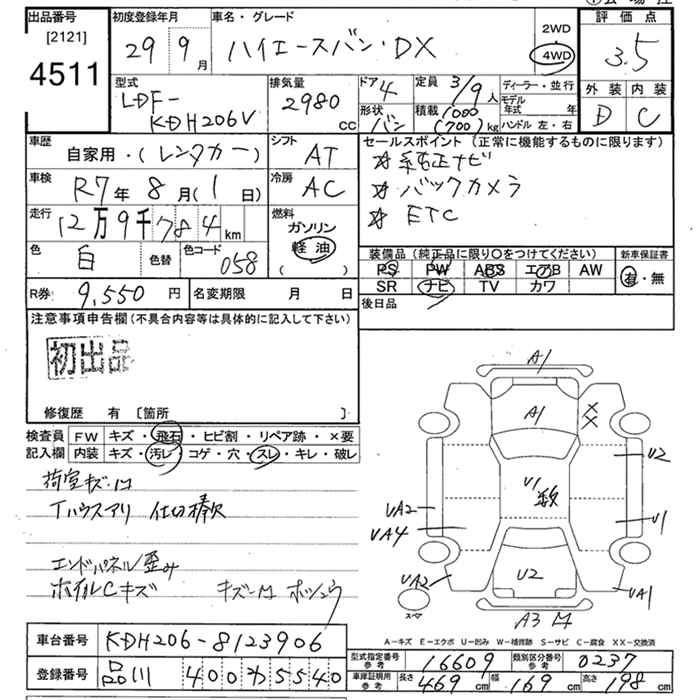 出品番号
[2121]
4511
初度登録年月
29年 9月
車名・グレード
ハイエースバン・DX
2WD
4WD
評価点
3.5
型式
LDF-
KDH206V
排気量
2980
cc
ドア 4
定員 3/9人
形状 バン
積載 1000
(700) kg
ディーラー・並行
モデル年式 年
ハンドル 左・右
外装 内装
D C
車歴
自家用・(レンタカー)
シフト
AT
車検
R7年 8月(1日)
冷房
AC
走行
12万9千784 km
燃料
ガソリン
軽油
( )
色
白
色替
色コード
058
R券 9,550 円
名変期限 月 日
セールスポイント (正常に機能するものに限ります)
☆ 純正ナビ
☆ バックカメラ
☆ ETC
装備品 (純正品に限り○をつけてください)
新車保証書
PS PW ABS エアB AW
SR ナビ TV カワ
有・無
後日品
注意事項申告欄 (不具合内容等は具体的に記入して下さい)
初出品
修復歴 有 [箇所 ]
検査員
記入欄
FW キズ・飛石・ヒビ割・リペア跡・×要
内装 キズ・汚レ・コゲ・穴・スレ・キレ・破レ
荷室キズ・凹
エンドパネル歪み
ホイルCキズ
A1
A1
××
U2
U1
UA2
UA4
U1
UA2
U2
UA1
スペア
A3 凹
A-キズ E-エクボ U-凹み W-補修跡 S-サビ C-腐食 XX-交換済
車台番号 KDH206-8123906
登録番号 品川 400 わ 5540
型式指定番号 参考 16609
類別区分番号 参考 0237
車庫証明用 参考
長さ 469 cm
幅 169 cm
高さ 198 cm